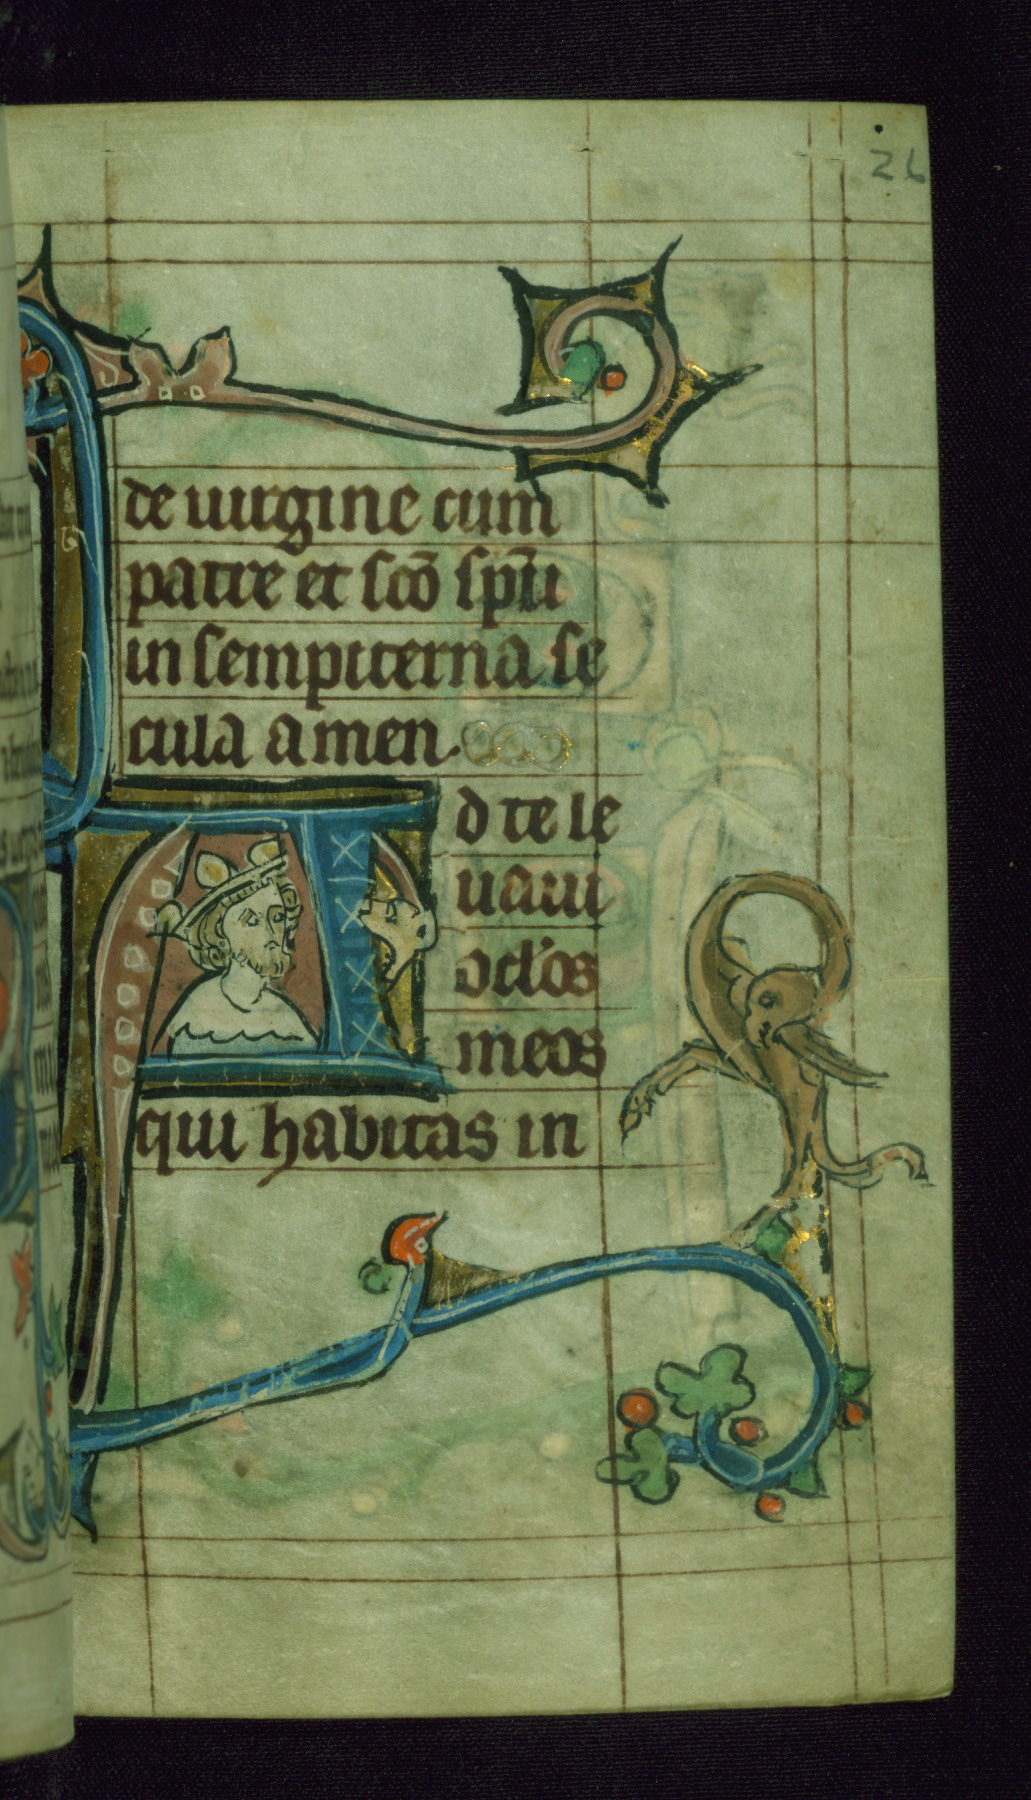 26
de uirgine cum
patre et sc̄o sp̄u
in sempiterna se
cula amen
Ad te le
uaui
ocl'os
meos
qui habitas in